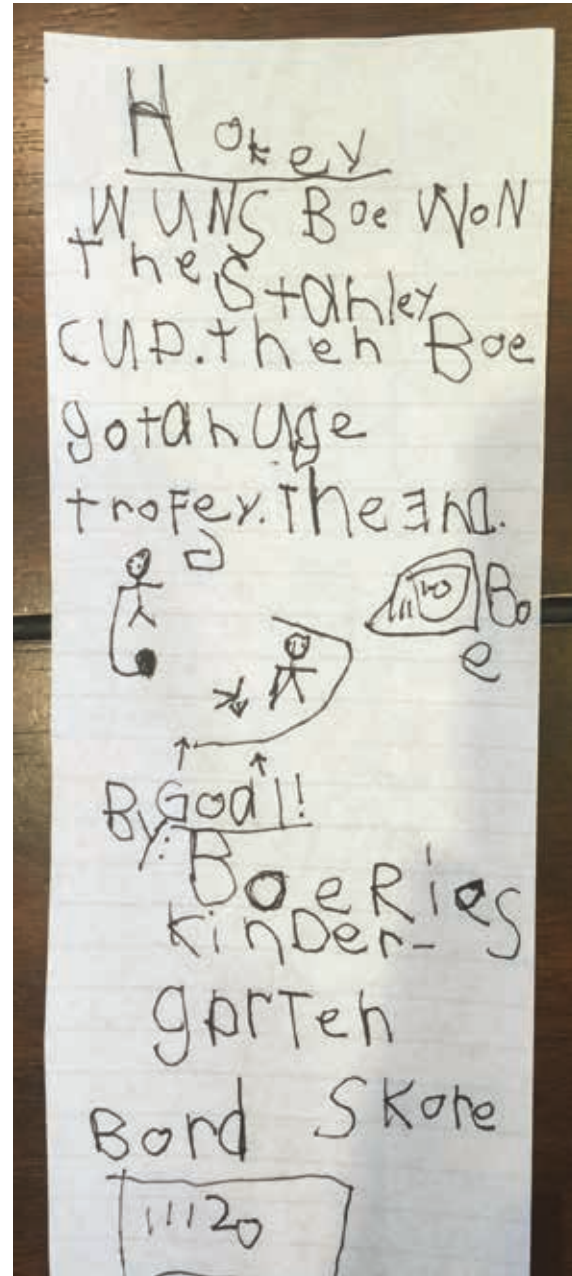 Hokey
WUNS Boe WoN
the Stanley
CUP. then Boe
gotahuge
trofey. The End.
1110 Bo
e
Goal!
By:
Boe Ries
kinDer-
garTen
Bord Skore
11120